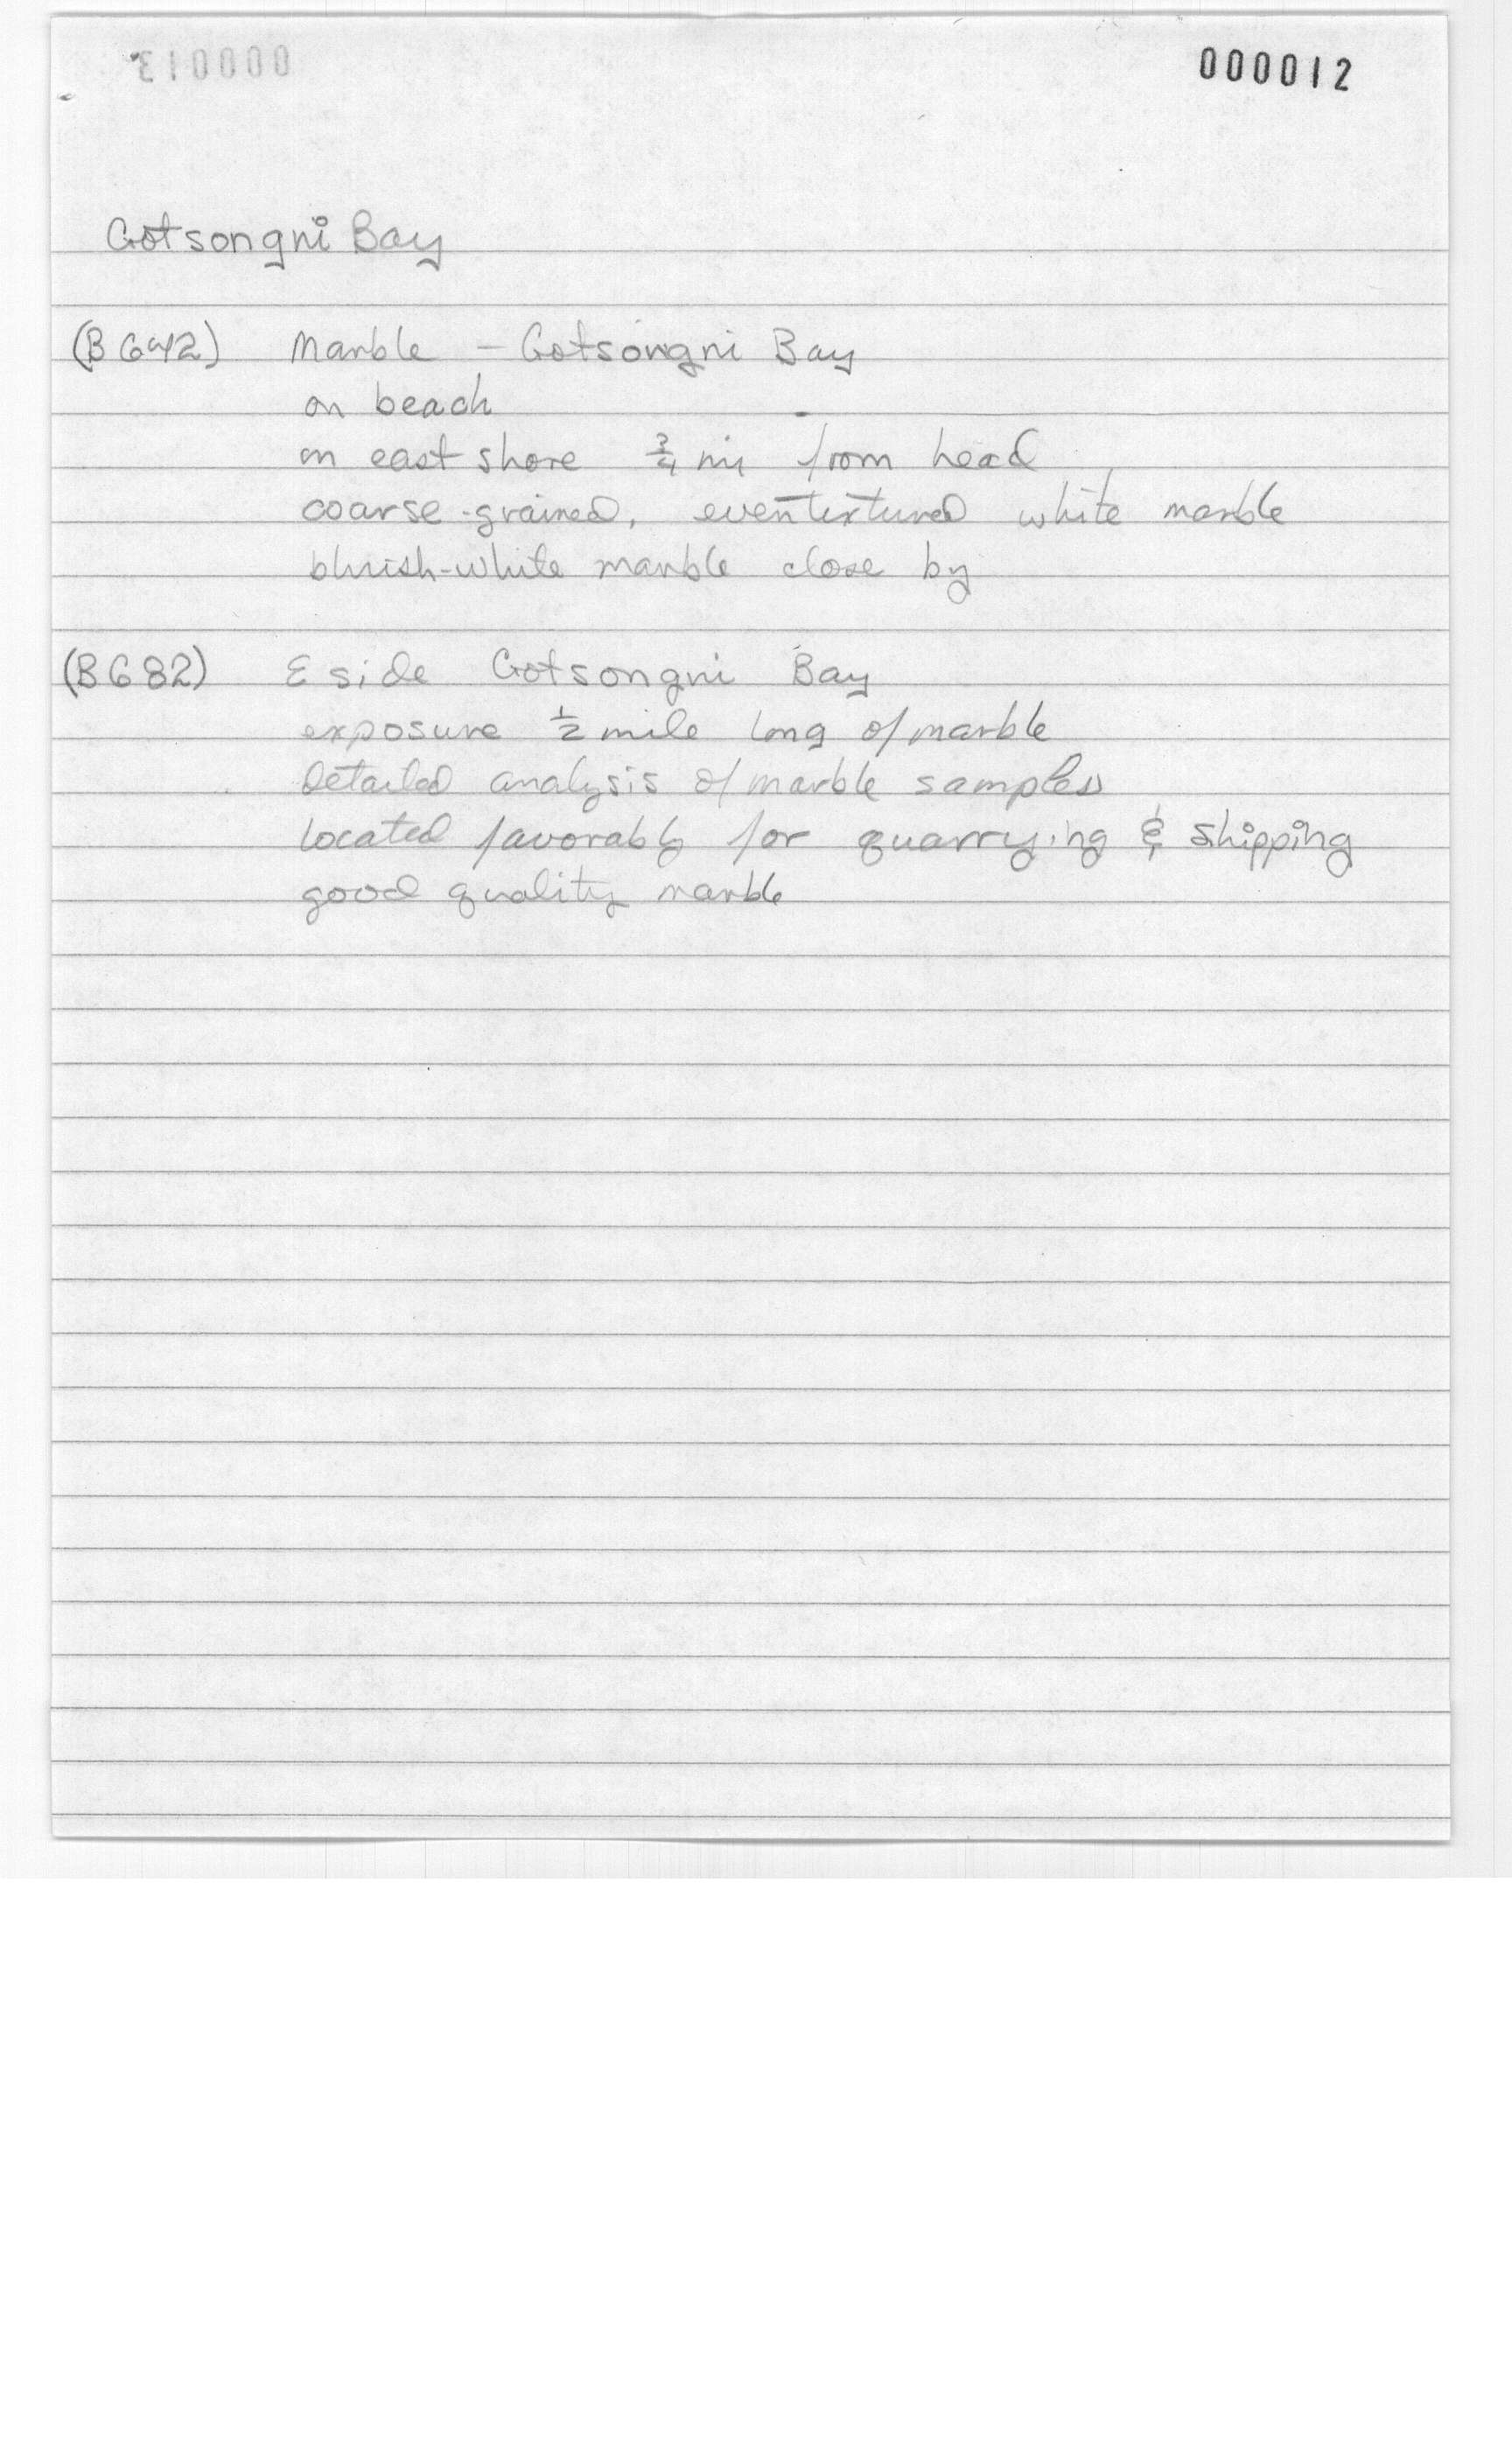 000013 000012
Gotsongni Bay
(B 642) Marble - Gotsongni Bay
on beach
on east shore 3/4 mi from head
coarse-grained, even textured white marble
bluish-white marble close by
(B 682) E side Gotsongni Bay
exposure 1/2 mile long of marble
detailed analysis of marble samples
located favorably for quarrying & shipping
good quality marble